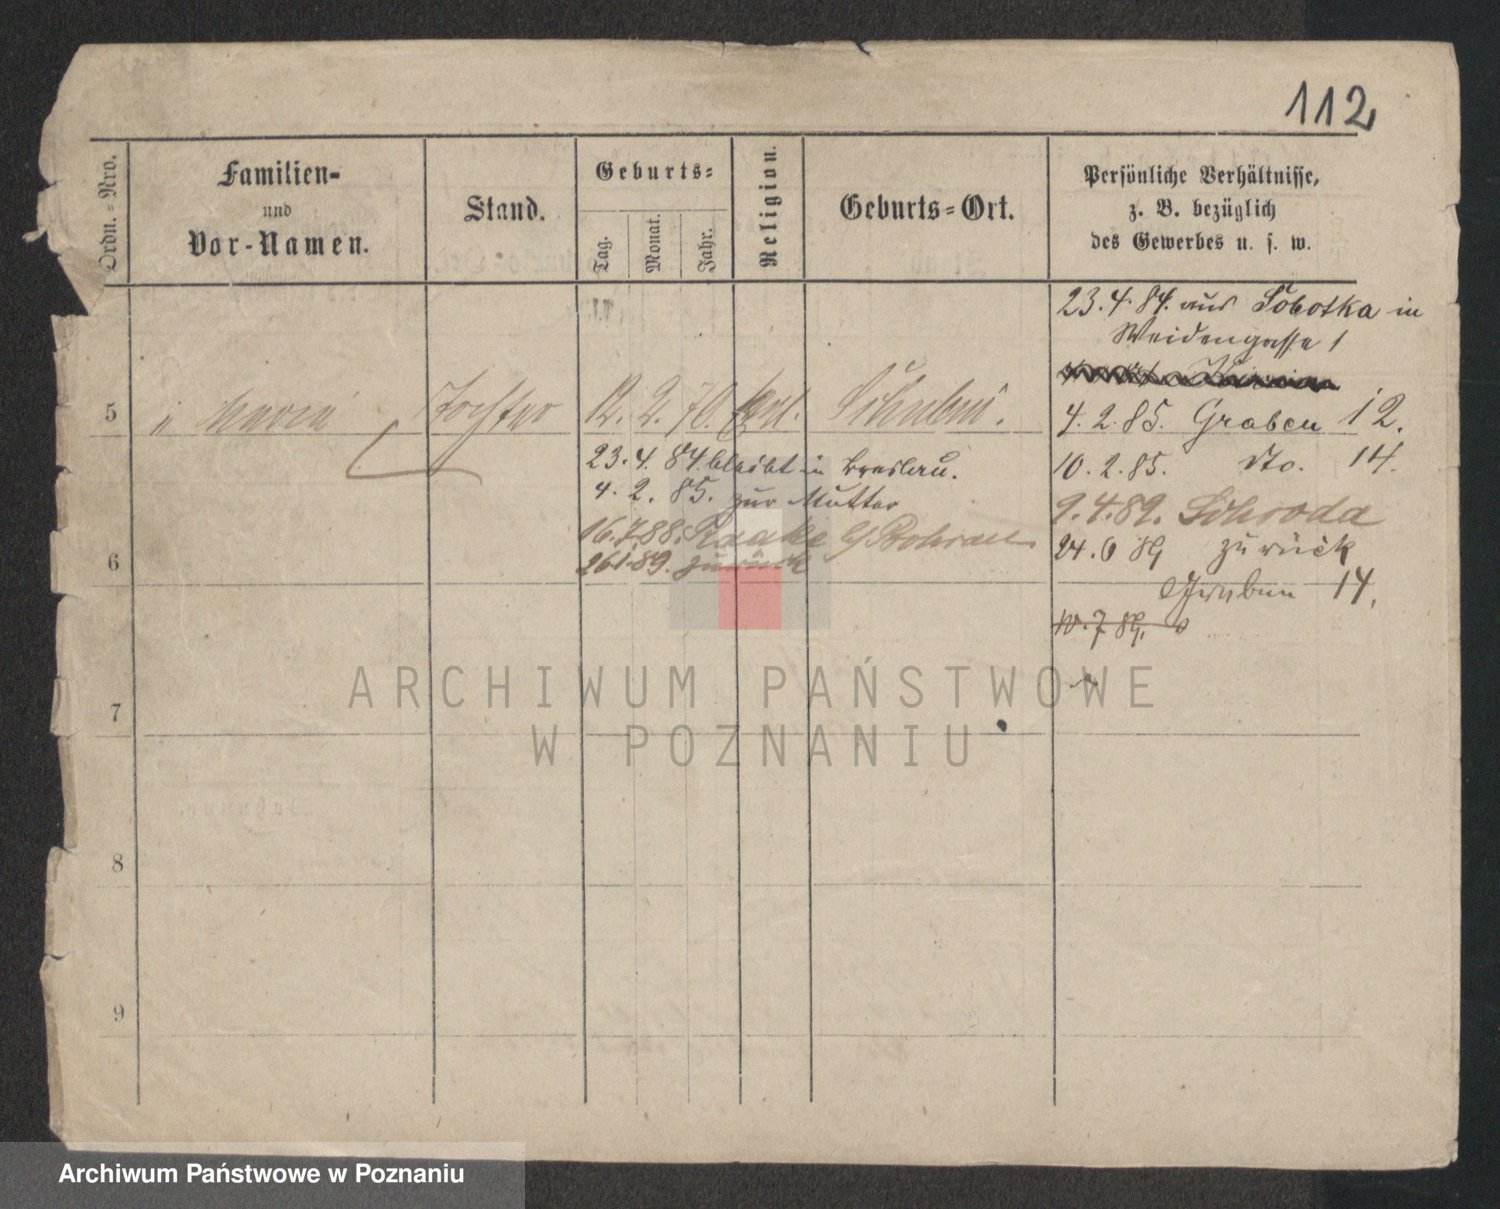 112
Ordn.=Nro.
Familien-
und
Vor-Namen.
Stand.
Geburts=
Tag.
Monat.
Jahr.
Religion.
Geburts=Ort.
Persönliche Verhältnisse,
z. B. bezüglich
des Gewerbes u. s. w.
23.4.84. aus Sobotka in
Weidengasse 1
5
Tochter 12. 2. 70.
4. 2. 85. Graben 12.
23. 4. 84. bleibt in Breslau.
10. 2. 85. dto. 14.
4. 2. 85. zur Mutter
9.4.89. Schroda
16.7.88. Raake
24. 6 89 zurück
26.1.89. zurück
6
Graben 14.
10. 7 89.
7
8
9
ARCHIWUM PAŃSTWOWE
W POZNANIU
Archiwum Państwowe w Poznaniu